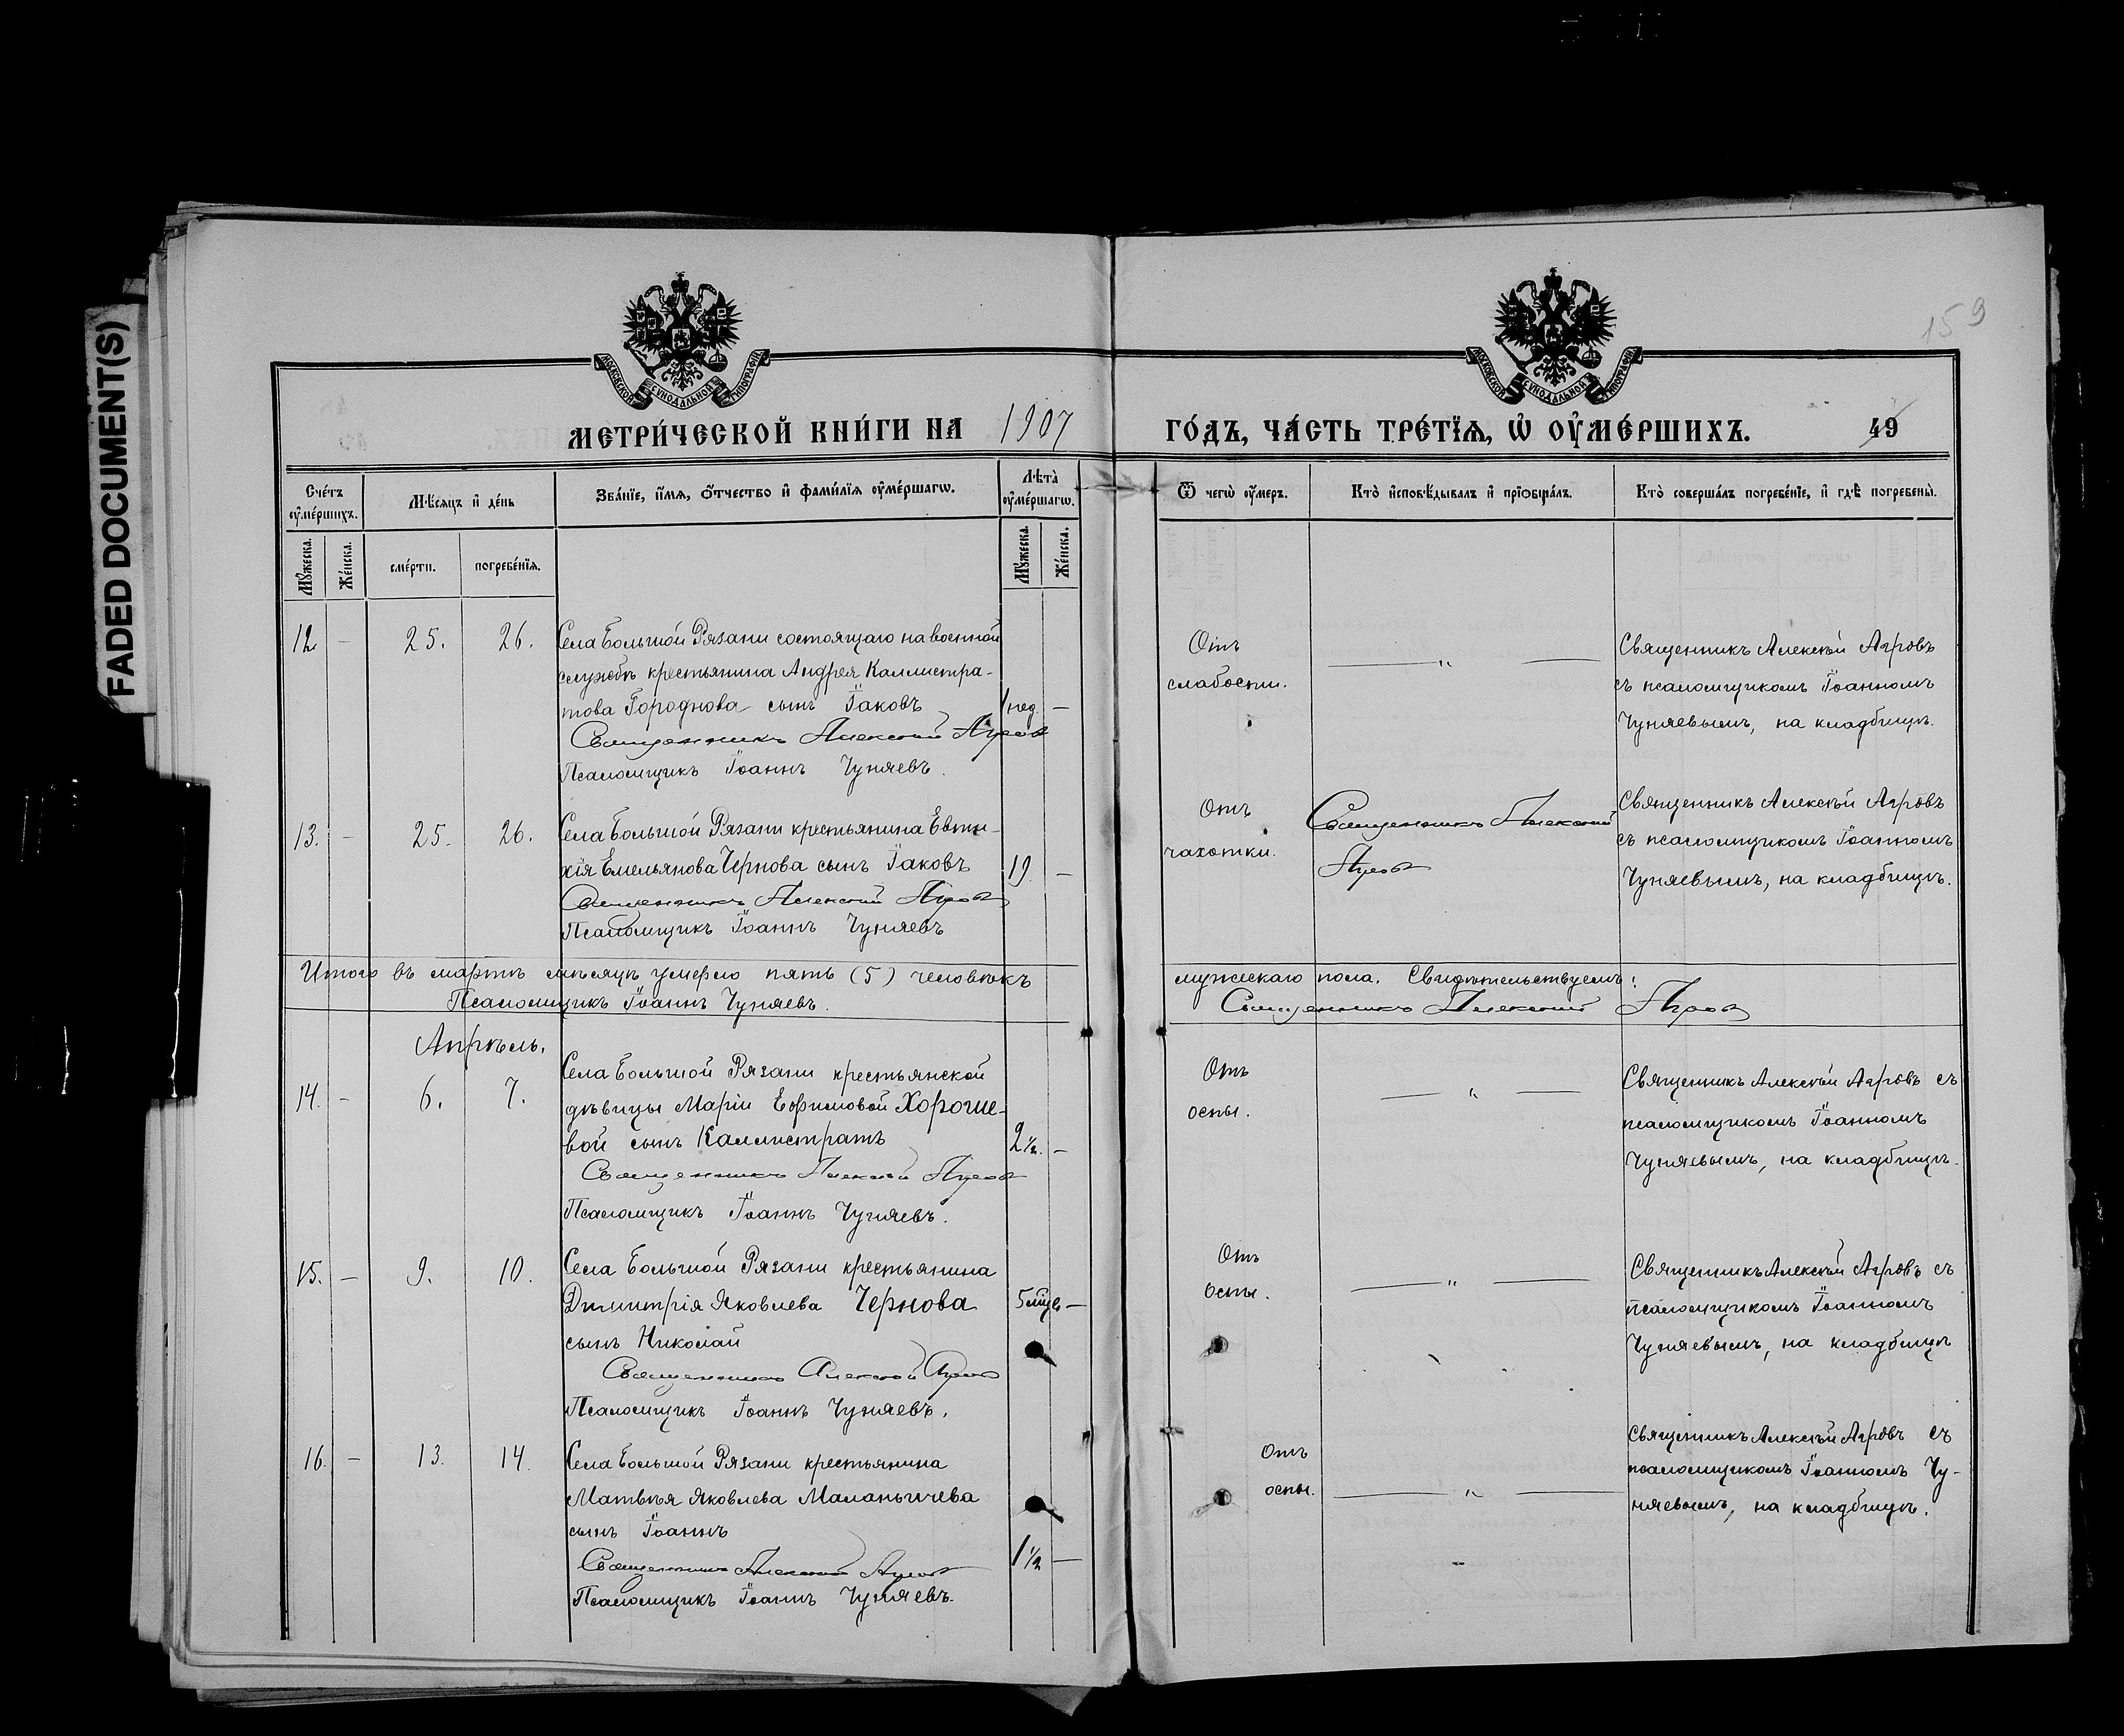 FADED DOCUMENT(S)
159
МОСКОВСКОЙ СѴНОДАЛЬНОЙ ТИПОГРАФІИ
МОСКОВСКОЙ СѴНОДАЛЬНОЙ ТИПОГРАФІИ
МЕТРИ́ЧЕСКОЙ КНИ́ГИ НА 1907 ГО́ДЪ, ЧА́СТЬ ТРЕ́ТЇѦ, Ѡ҆ ОУ҆МЕ́РШИХЪ. 49
Сче́тъ оу҆ме́ршихъ.
Мѣ́сяцъ и҆ де́нь
Зва́нїе, и҆́мя, ѻ҆́тчество и҆ фами́лїя оу҆ме́ршагѡ.
Лѣта̀ оу҆ме́ршагѡ.
Ѿ чегѡ̀ оу҆́меръ.
Кто̀ и҆сповѣ́дывалъ и҆ прїѡбща́лъ.
Кто̀ соверша́лъ погребе́нїе, и҆ гдѣ̀ погребены̀.
Мꙋ́жеска.
Же́нска.
сме́рти.
погребе́нїя.
Мꙋ́жеска.
Же́нска.
12. - 25. 26. Села Большой Рязани состоящаго на военной
службѣ крестьянина Андрея Каллистра-
това Городнова сынъ Іаковъ 1 нед. -
Священникъ Алексѣй Агровъ
Псаломщикъ Іоаннъ Чуняевъ.
Отъ
слабости.
— „ —
Священникъ Алексѣй Агровъ
съ псаломщикомъ Іоанномъ
Чуняевымъ, на кладбищѣ.
13. - 25. 26. Села Большой Рязани крестьянина Евти-
хія Емельянова Чернова сынъ Іаковъ 19 -
Священникъ Алексѣй Агровъ
Псаломщикъ Іоаннъ Чуняевъ
Отъ
чахотки.
Священникъ Алексѣй
Агровъ
Священникъ Алексѣй Агровъ
съ псаломщикомъ Іоанномъ
Чуняевымъ, на кладбищѣ.
Итого въ мартѣ мѣсяцѣ умерло пять (5) человѣкъ мужескаго пола. Свидѣтельствуемъ:
Псаломщикъ Іоаннъ Чуняевъ. Священникъ Алексѣй Агровъ
Апрѣль.
14. - 6. 7. Села Большой Рязани крестьянской
дѣвицы Маріи Ефимовой Хороше-
вой сынъ Каллистратъ 2½. -
Священникъ Алексѣй Агровъ
Псаломщикъ Іоаннъ Чуняевъ.
Отъ
оспы.
— „ —
Священникъ Алексѣй Агровъ съ
псаломщикомъ Іоанномъ
Чуняевымъ, на кладбищѣ.
15. - 9. 10. Села Большой Рязани крестьянина
Дмитрія Яковлева Чернова 5 мѣс. -
сынъ Николай
Священникъ Алексѣй Агровъ
Псаломщикъ Іоаннъ Чуняевъ.
Отъ
оспы.
— „ —
Священникъ Алексѣй Агровъ съ
псаломщикомъ Іоанномъ
Чуняевымъ, на кладбищѣ
16. - 13. 14. Села Большой Рязани крестьянина
Матвѣя Яковлева Маланьичева
сынъ Іоаннъ 1½ -
Священникъ Алексѣй Агровъ
Псаломщикъ Іоаннъ Чуняевъ.
Отъ
оспы.
— „ —
Священникъ Алексѣй Агровъ съ
псаломщикомъ Іоанномъ Чу-
няевымъ, на кладбищѣ.